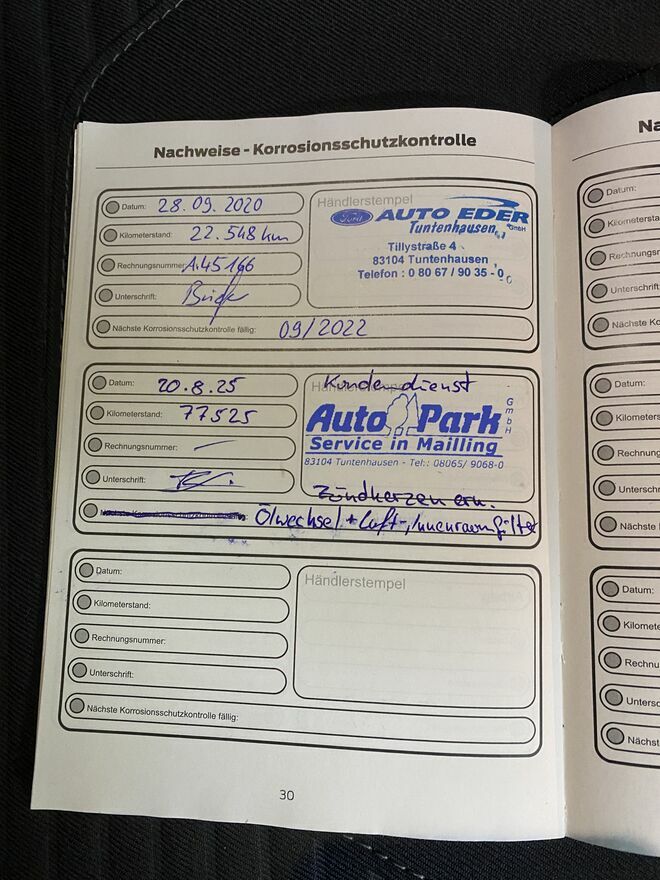 Nachweise - Korrosionsschutzkontrolle
Datum: 28.09.2020
Kilometerstand: 22.548 km
Rechnungsnummer: A.45166
Unterschrift:
Nächste Korrosionsschutzkontrolle fällig: 09/2022
Händlerstempel
Ford AUTO EDER
Tuntenhausen GmbH
Tillystraße 4
83104 Tuntenhausen
Telefon : 0 80 67 / 90 35 - 0
Datum: 20.8.25
Kilometerstand: 77525
Rechnungsnummer: —
Unterschrift:
Kundendienst
Auto Park GmbH
Service in Mailling
83104 Tuntenhausen - Tel.: 08065/ 9068-0
Zündkerzen ern.
Ölwechsel + Luft-, Innenraumfilter
Datum:
Kilometerstand:
Rechnungsnummer:
Unterschrift:
Nächste Korrosionsschutzkontrolle fällig:
Händlerstempel
30
Na
Datum:
Kilometersta
Rechnungsn
Unterschrift
Nächste K
Datum:
Kilometers
Rechnung
Unterschr
Nächste
Datum:
Kilomete
Rechnu
Untersc
Nächst